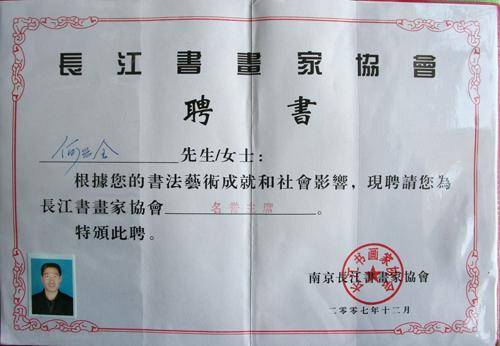 長江書畫家協會
聘書
何 全 先生/女士：
根據您的書法藝術成就和社會影響，現聘請您為
長江書畫家協會 名誉主席 。
特頒此聘。
南京長江書畫家協會
长江书画家协会
二零零七年十二月